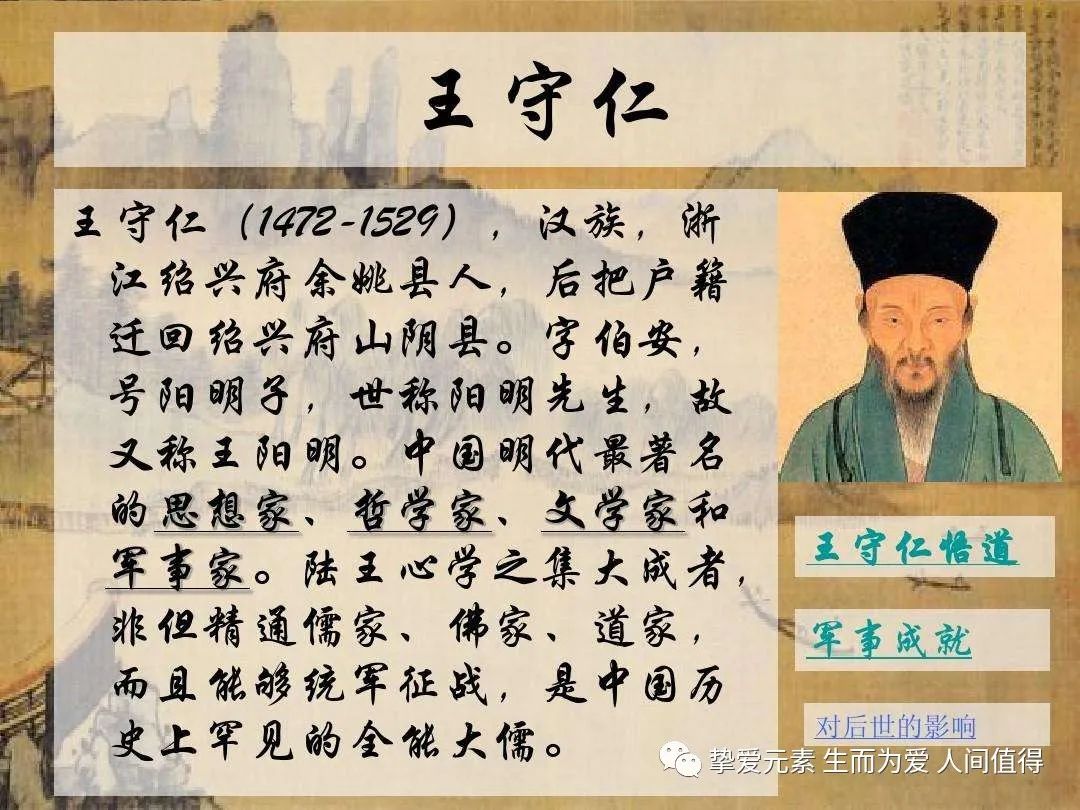 王守仁
王守仁（1472-1529），汉族，浙
江绍兴府余姚县人，后把户籍
迁回绍兴府山阴县。字伯安，
号阳明子，世称阳明先生，故
又称王阳明。中国明代最著名
的思想家、哲学家、文学家和
军事家。陆王心学之集大成者，
非但精通儒家、佛家、道家，
而且能够统军征战，是中国历
史上罕见的全能大儒。
王守仁悟道
军事成就
对后世的影响
挚爱元素 生而为爱 人间值得